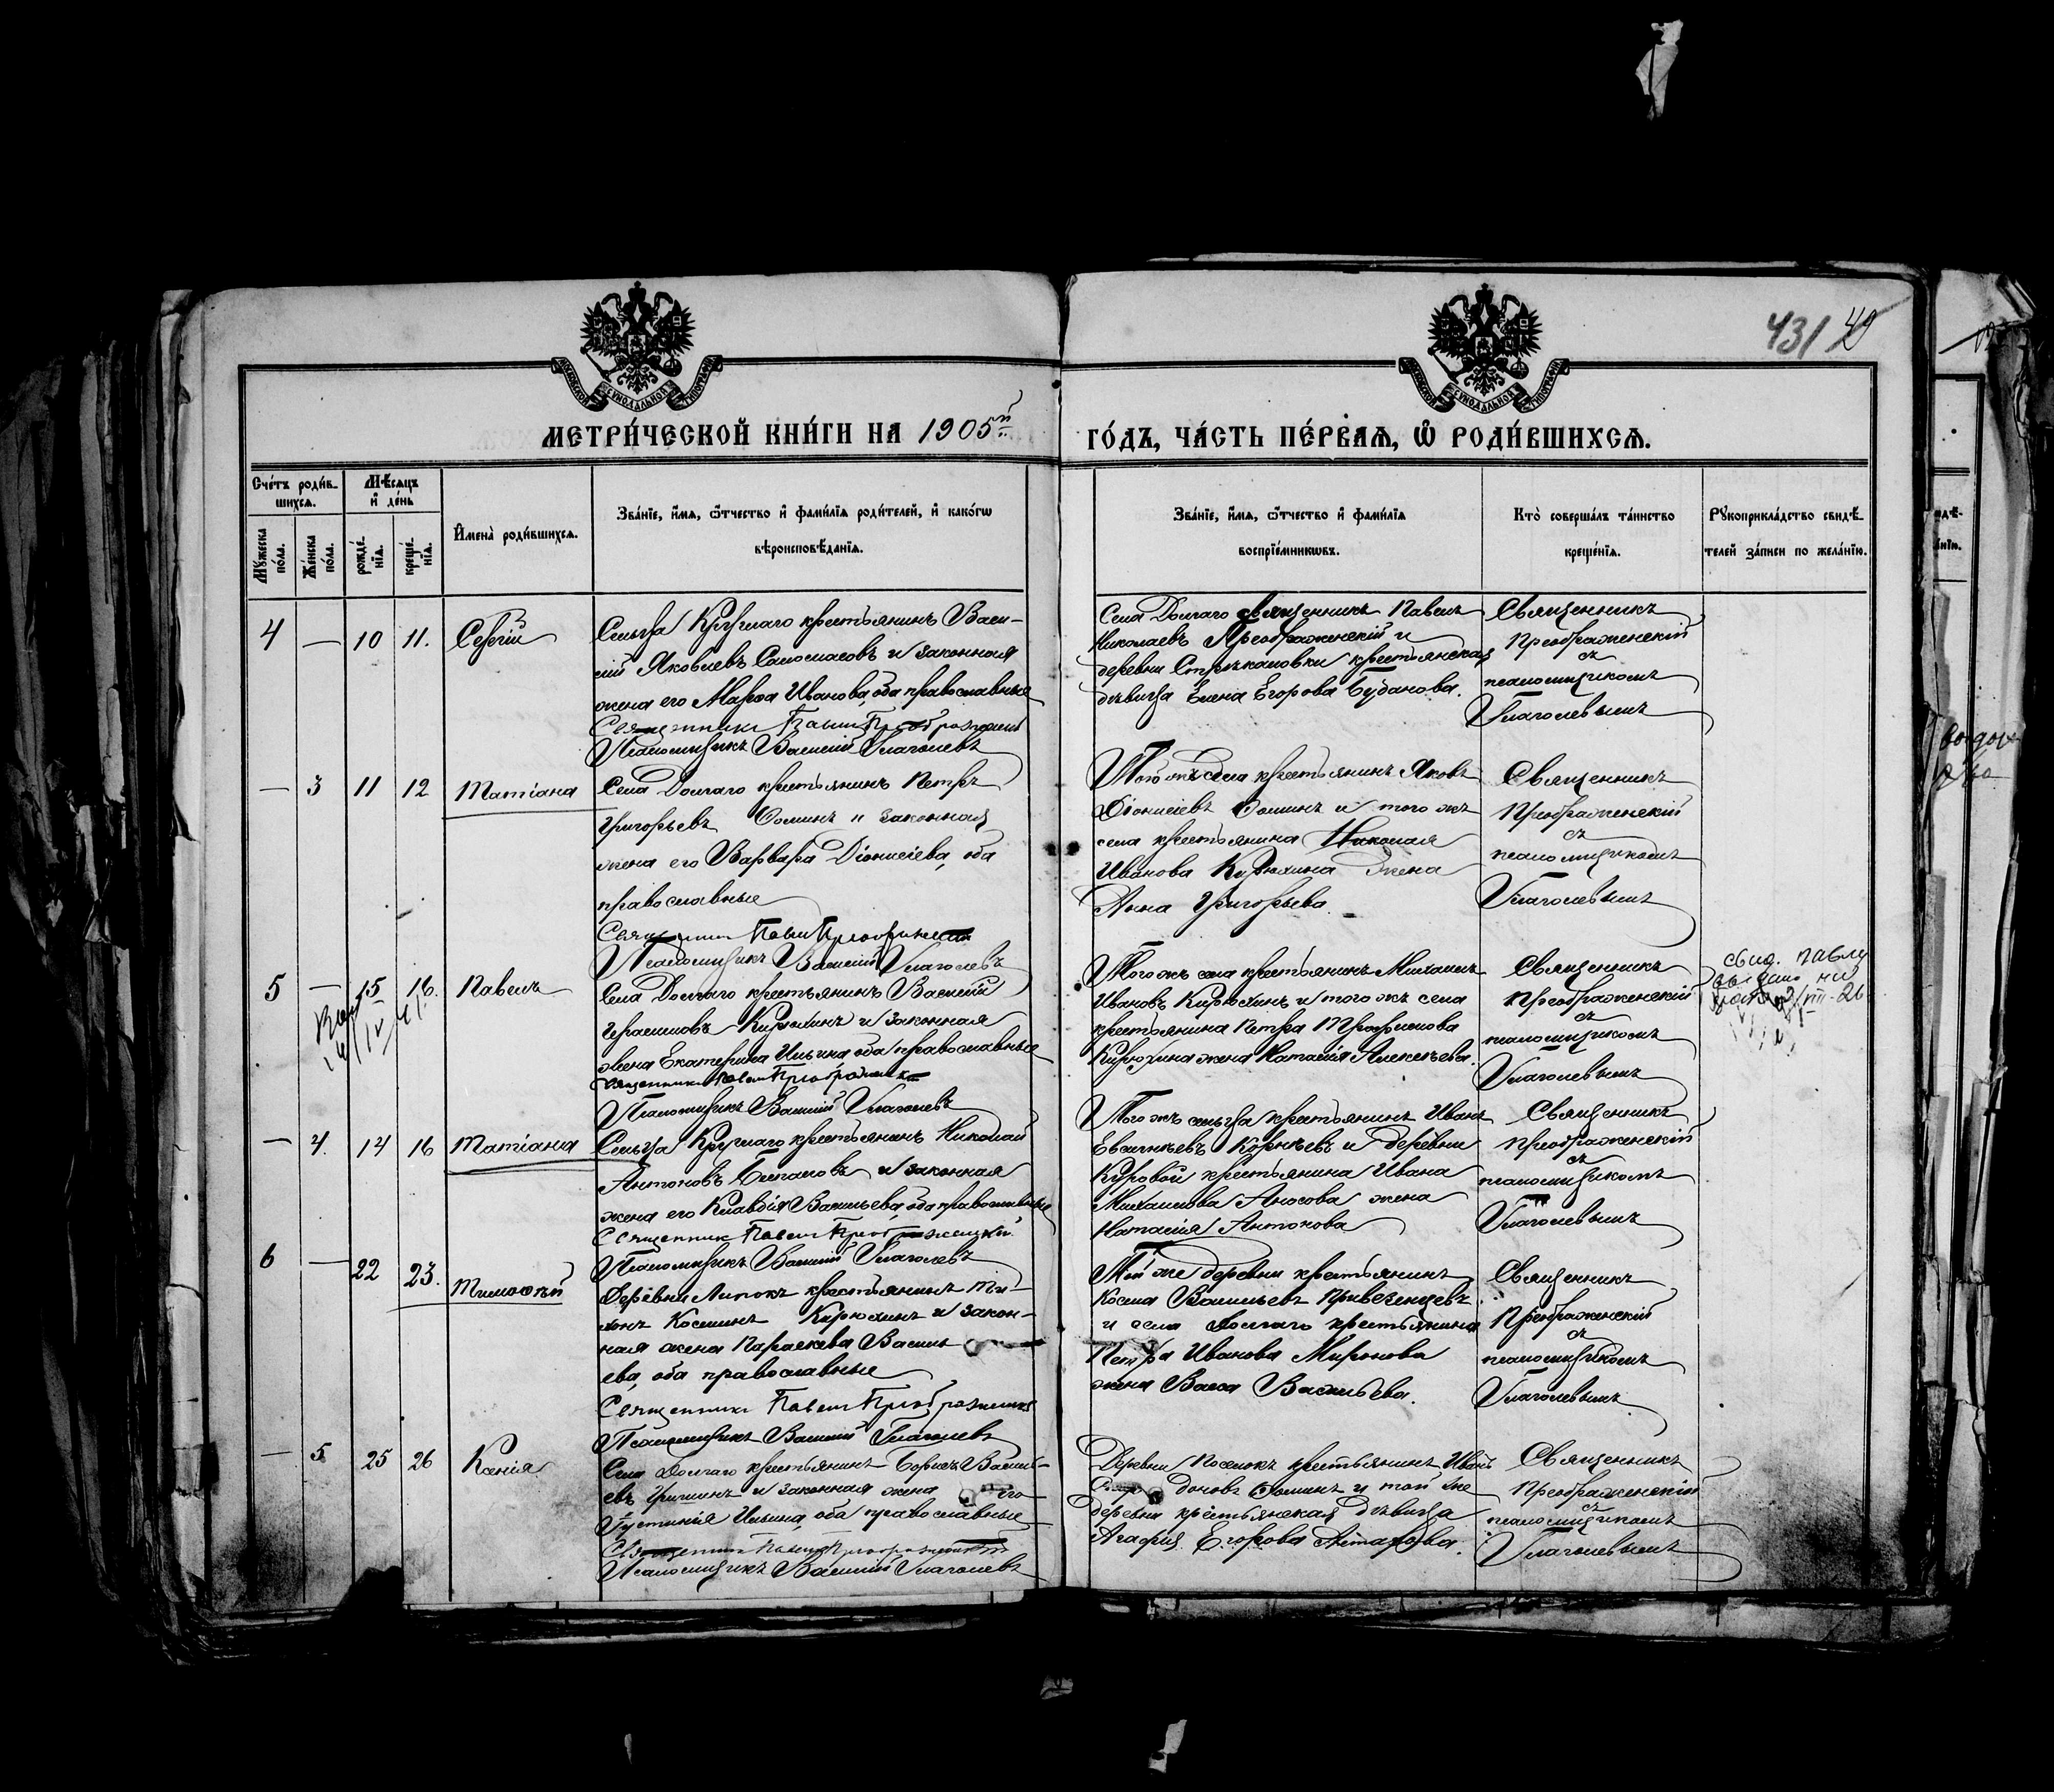 431 42
МОСКОВСКОЙ СѴНОДАЛЬНОЙ ТИПОГРАФІИ
МОСКОВСКОЙ СѴНОДАЛЬНОЙ ТИПОГРАФІИ
МЕТРИ́ЧЕСКОЙ КНИ́ГИ НА 1905й
ГО́ДЪ, ЧА́СТЬ ПЕ́РВАѦ, Ѡ҆ РОДИ́ВШИХСѦ.
Сче́тъ роди́в-
шихсѧ.
Мꙋ́жеска
по́ла.
Же́нска
по́ла.
Мѣ́сѧцъ
и҆ де́нь
рожде́-
нїѧ.
креще́-
нїѧ.
И҆мена̀ роди́вшихсѧ.
Зва́нїе, и҆́мѧ, ѻ҆́тчество и҆ фами́лїѧ роди́телей, и҆ како́гѡ
вѣроисповѣ́данїѧ.
Зва́нїе, и҆́мѧ, ѻ҆́тчество и҆ фами́лїѧ
воспрїе́мникѡвъ.
Кто̀ соверша́лъ та́инство
креще́нїѧ.
Рꙋкоприкла́дство свидѣ́-
телей за́писи по жела́нїю.
4 — 10 11. Сергій
Сельца Круглаго крестьянинъ Васи-
лій Яковлевъ и законная
жена его Марѳа Иванова, оба православные
Священникъ Павелъ Преображенскій
Псаломщикъ Василій Глаголевъ
Села Долгаго священникъ Павелъ
Николаевъ Преображенскій и
деревни крестьянская
дѣвица Елена Егорова Буданова.
Священникъ
Преображенскій
съ
псаломщикомъ
Глаголевымъ
— 3 11 12 Татіана
Села Долгаго крестьянинъ Петръ
Григорьевъ Ѳоминъ и законная
жена его Варвара Діонисіева, оба
православные
Священникъ Павелъ Преображенскій
Псаломщикъ Василій Глаголевъ
Того жъ села крестьянинъ Яковъ
Діонисіевъ Ѳоминъ и того жъ
села крестьянина Николая
Иванова Кирюхина жена
Анна Григорьева.
Священникъ
Преображенскій
съ
псаломщикомъ
Глаголевымъ
5 — 15 16. Павелъ
Села Долгаго крестьянинъ Василій
Герасимовъ Кирюхинъ и законная
жена Екатерина Ильина оба православные
Священникъ Павелъ Преображенскій
Псаломщикъ Василій Глаголевъ
Того жъ села крестьянинъ Михаилъ
Ивановъ Кирюхинъ и того жъ села
крестьянина Петра Трофимова
Кирюхина жена Наталія Алексѣева.
Священникъ
Преображенскій
съ
псаломщикомъ
Глаголевымъ
свид.
VIII-26
— 4. 14 16 Татіана
Сельца Круглаго крестьянинъ Николай
Антоновъ и законная
жена его Клавдія Васильева, оба православные
Священникъ Павелъ Преображенскій
Псаломщикъ Василій Глаголевъ
Того жъ сельца крестьянинъ Иванъ
Корнѣевъ и деревни
Куровой крестьянина Ивана
Михаилова Аносова жена
Наталія Антонова
Священникъ
Преображенскій
съ
псаломщикомъ
Глаголевымъ
6 — 22 23. Тимоѳей
Деревни Липокъ крестьянинъ Ти-
хонъ Косминъ Кирюхинъ и закон-
ная жена Параскева Василь-
ева, оба православные
Священникъ Павелъ Преображенскій
Псаломщикъ Василій Глаголевъ
Той же деревни крестьянинъ
Косма Васильевъ Привезенцевъ
и села Долгаго крестьянина
Петра Иванова Миронова
жена Васса Васильева.
Священникъ
Преображенскій
съ
псаломщикомъ
Глаголевымъ
— 5 25 26 Ксенія
Села Долгаго крестьянинъ Борисъ Василь-
евъ Гришинъ и законная жена его
Іустинія Ильина, оба православные
Священникъ Павелъ Преображенскій
Псаломщикъ Василій Глаголевъ
Деревни Поселокъ крестьянинъ Иванъ
Ѳоминъ и той же
деревни крестьянская дѣвица
Агафія Егорова Астахова.
Священникъ
Преображенскій
съ
псаломщикомъ
Глаголевымъ